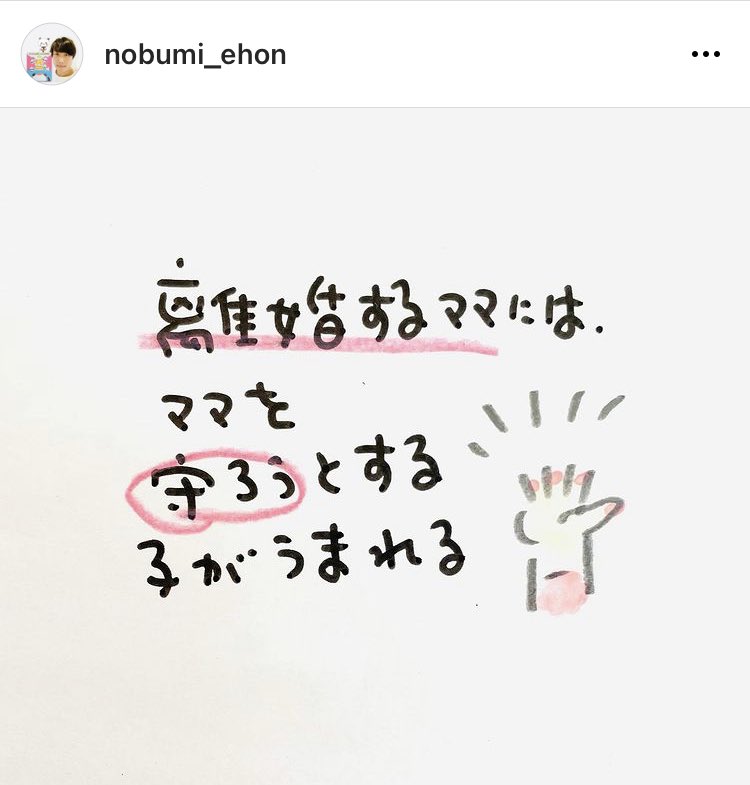 nobumi_ehon
離婚するママには、
ママを
守ろうとする
子がうまれる